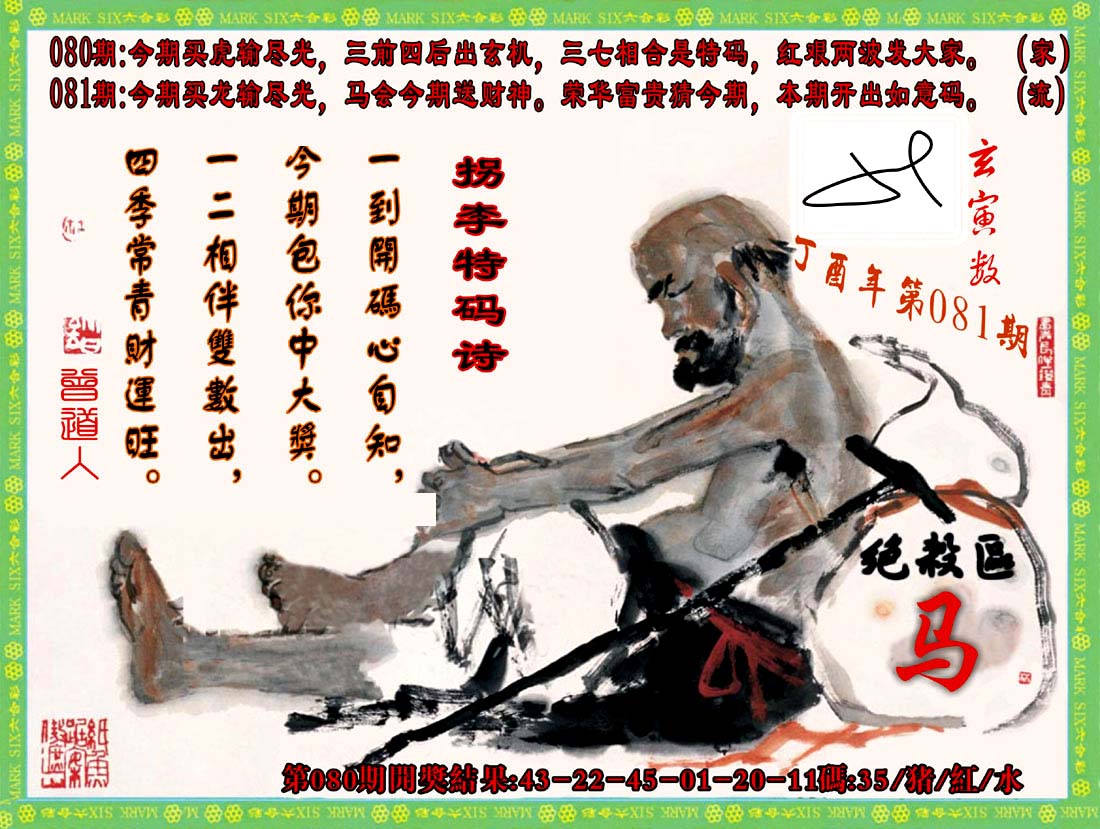 MARK SIX六合彩
080期:今期买虎输尽光，三前四后出玄机，三七相合是特码，红艰两波发大家。 (家)
081期:今期买龙输尽光，马会今期送财神。荣华富贵猜今期，本期开出如意码。 (流)
拐李特码诗
一到開碼心自知，
今期包你中大獎。
一二相伴雙數出，
四季常青財運旺。
曾道人
玄寅数
丁酉年第081期
绝殺區
马
第080期開獎結果:43-22-45-01-20-11碼:35/猪/紅/水